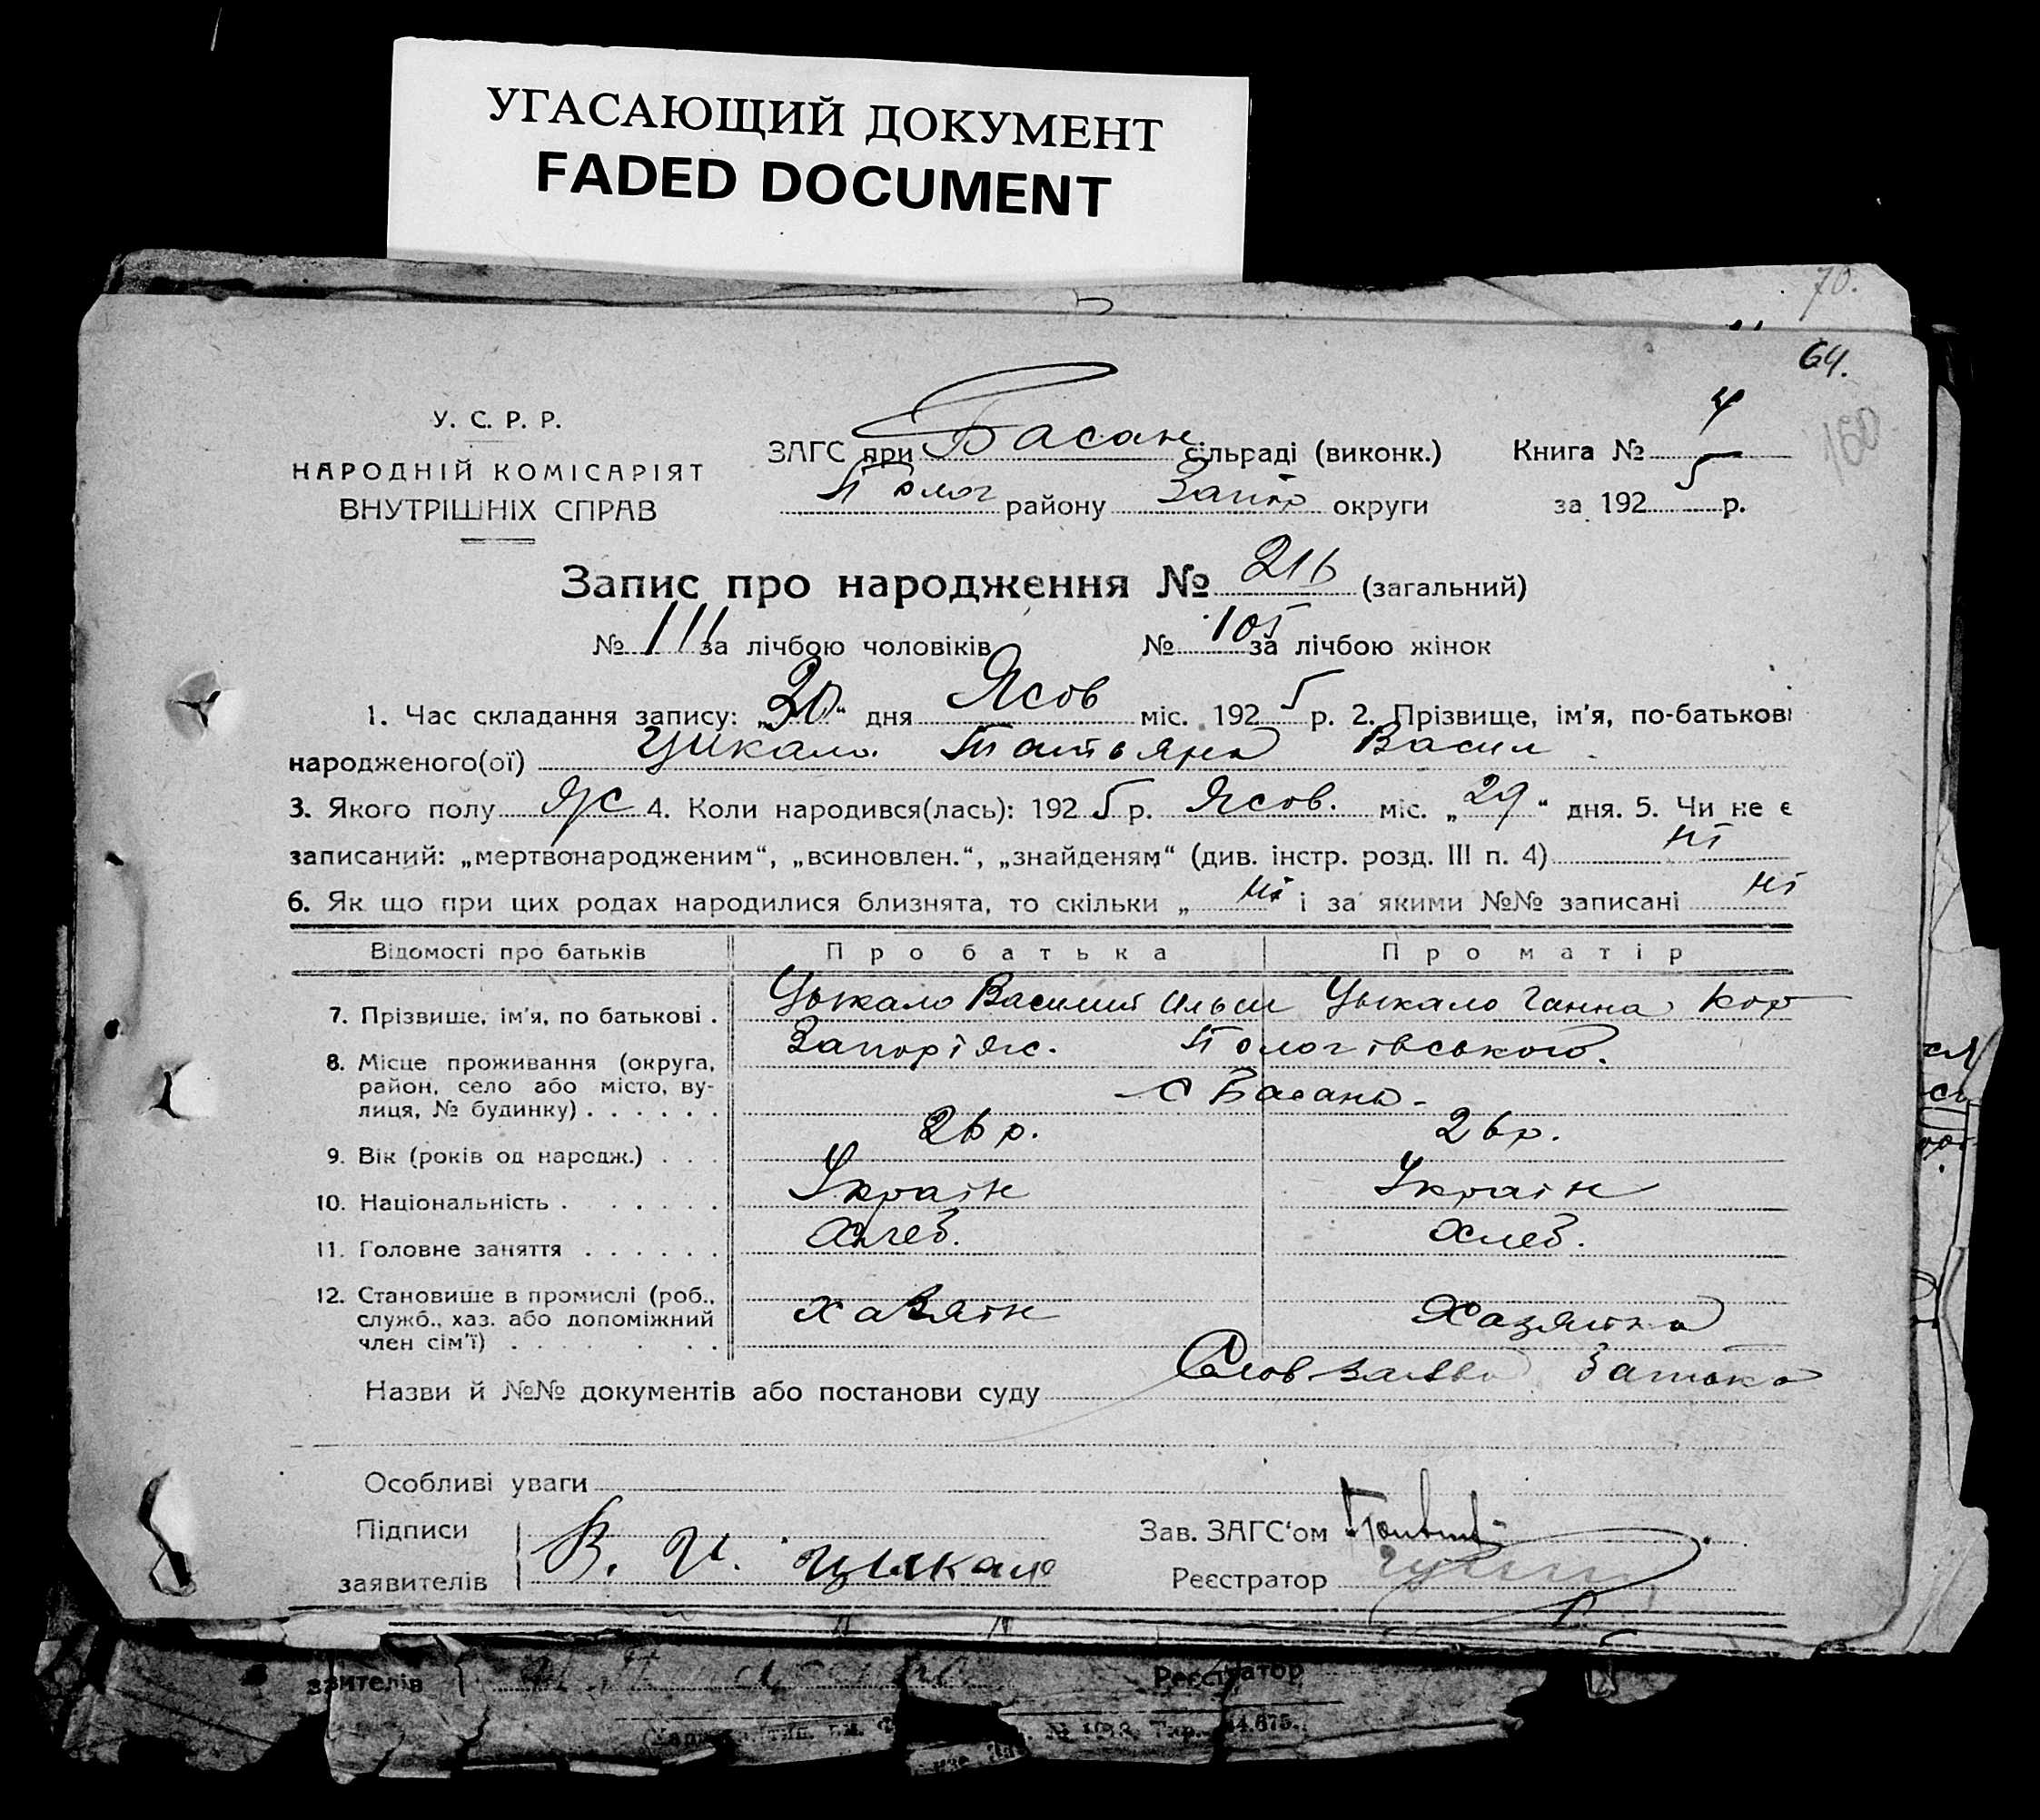 УГАСАЮЩИЙ ДОКУМЕНТ
FADED DOCUMENT
70.
64.
150
У. С. Р. Р.
НАРОДНІЙ КОМІСАРІЯТ
ВНУТРІШНІХ СПРАВ
ЗАГС при Басан сільраді (виконк.) Книга № 4
Полог району Запор округи за 1925 р.
Запис про народження № 216 (загальний)
№ 111 за лічбою чоловіків № 105 за лічбою жінок
1. Час складання запису: „30“ дня Жсов міс. 1925 р. 2. Прізвище, ім'я, по-батькові
народженого(ої) Цикало Татьяна Васил
3. Якого полу жс 4. Коли народився(лась): 1925 р. Жсов. міс. „29“ дня. 5. Чи не є
записаний: „мертвонародженим“, „всиновлен.“, „знайденям“ (див. інстр. розд. III п. 4) ні
6. Як що при цих родах народилися близнята, то скільки „ ні і за якими №№ записані ні
Відомості про батьків Про батька Про матір
7. Прізвище, ім'я, по батькові . Цыкало Василий Ильи Цыкало Ганна Кор
8. Місце проживання (округа, Запоріжс. Пологівського.
район, село або місто, ву-
лиця, № будинку) . . . . . . с Басань -
9. Вік (років од народж.) . . . 26 р. 26 р.
10. Національність . . . . . . . Україн Україн
11. Головне заняття . . . . . . Хлеб. Хлеб.
12. Становище в промислі (роб.,
служб., хаз. або допоміжний Хазяін Хазяіна
член сім'ї) . . . . . . . .
Назви й №№ документів або постанови суду Слов заява батька
Особливі уваги
Підписи Зав. ЗАГС'ом
заявителів В. И. Цыкало Реєстратор
явителів Реєстратор